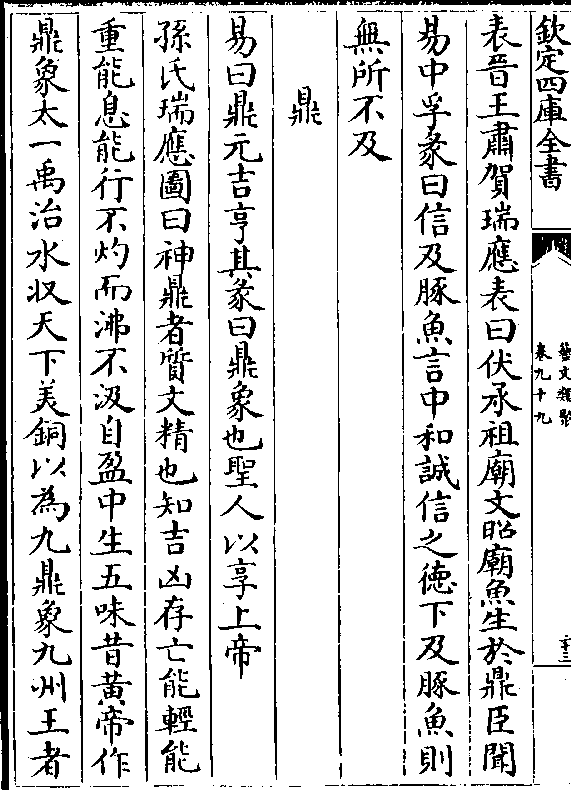 欽定四庫全書
藝文類聚
卷九十九
二十三
表晉王肅賀瑞應表曰伏承祖廟文昭廟魚生於鼎臣聞
易中孚彖曰信及豚魚言中和誠信之德下及豚魚則
無所不及
鼎
易曰鼎元吉亨其彖曰鼎象也聖人以享上帝
孫氏瑞應圖曰神鼎者質文精也知吉凶存亡能輕能
重能息能行不灼而沸不汲自盈中生五味昔黃帝作
鼎象太一禹治水收天下美銅以為九鼎象九州王者